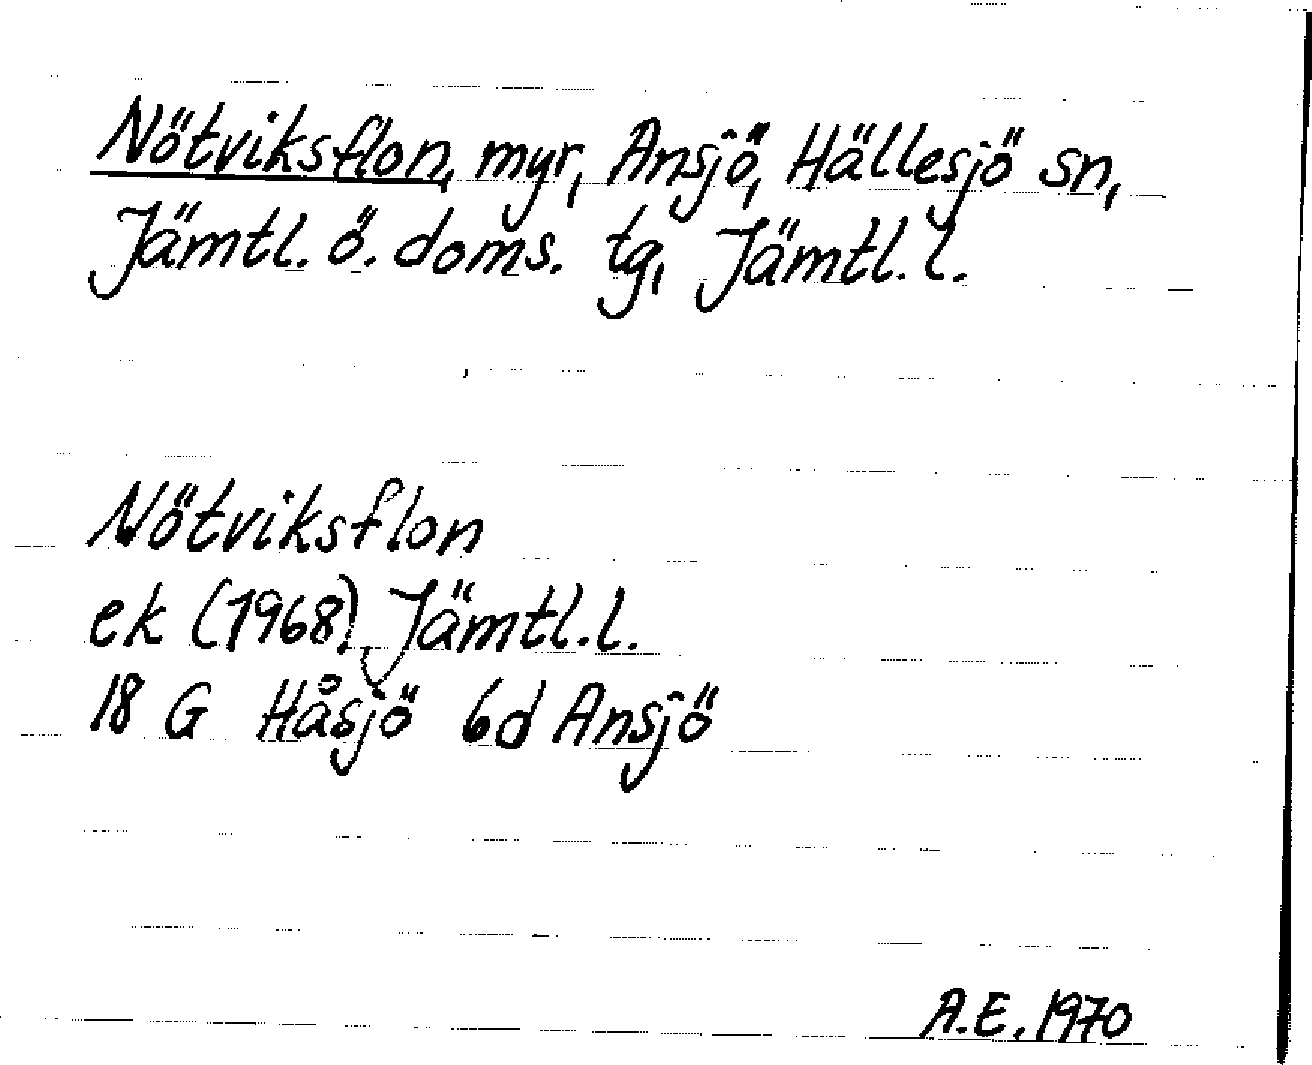 Nötviksflon, myr, Ansjö, Hällesjö sn,
Jämtl. ö. doms. tg, Jämtl. l.
Nötviksflon
ek (1968) Jämtl. l.
18 G Håsjö 6d Ansjö
A.E. 1970